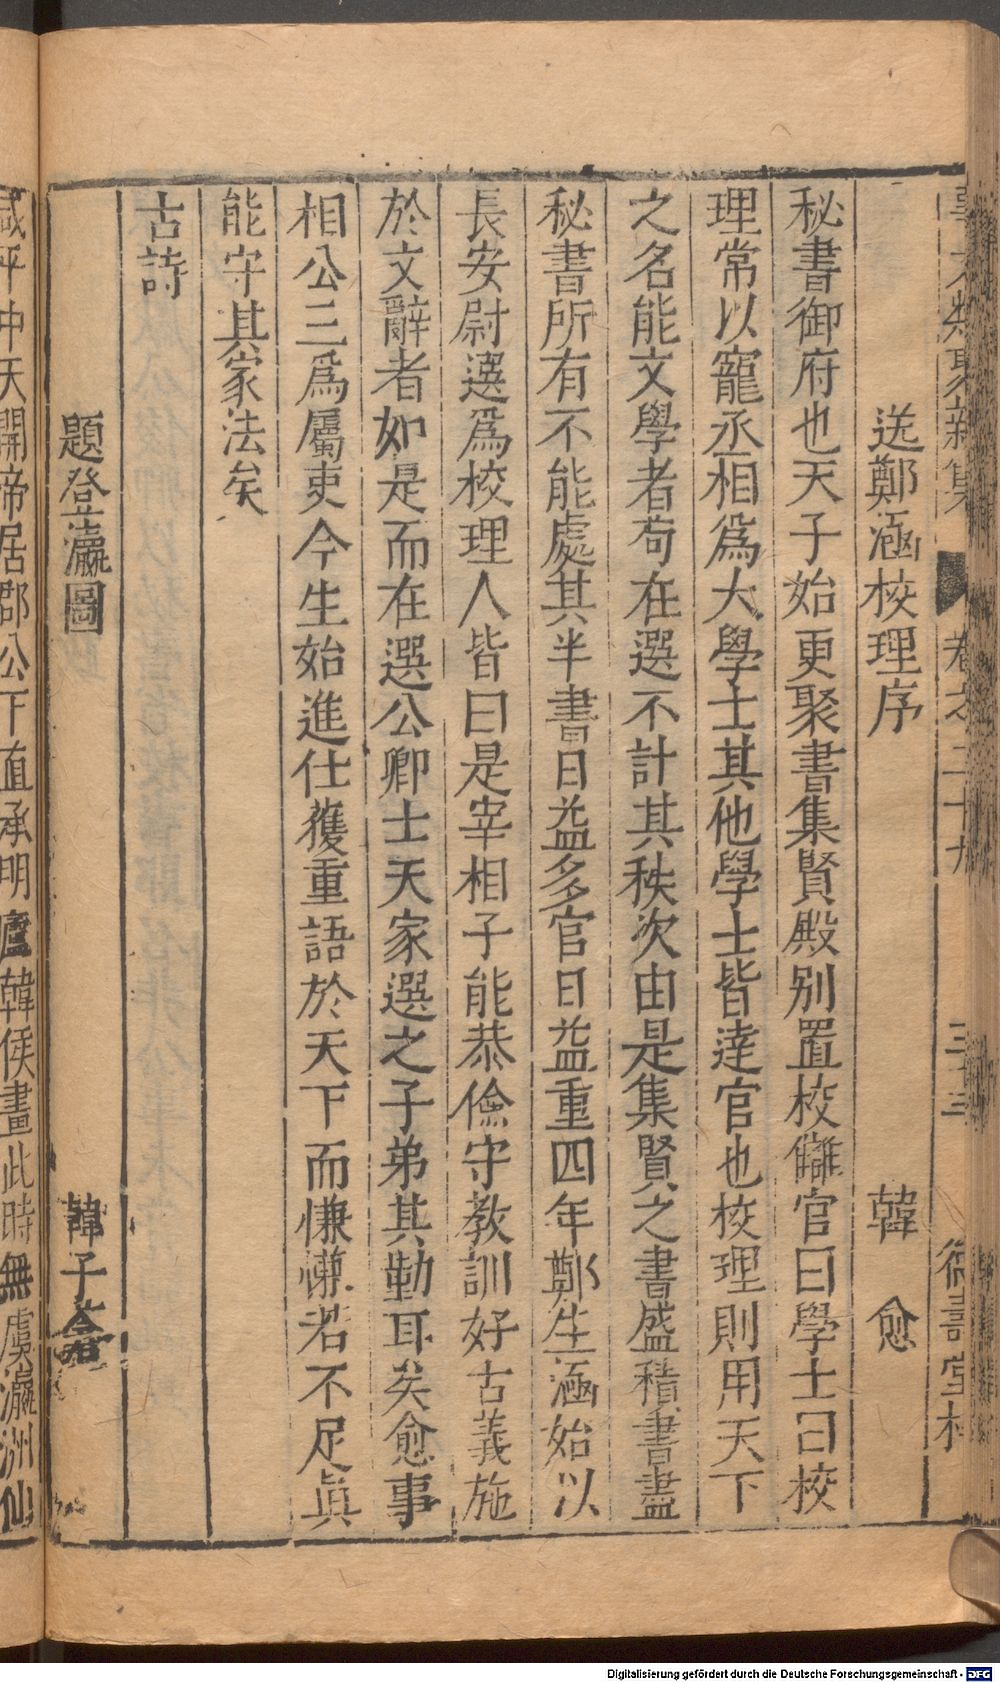 事文類聚新集 卷之二十九 三十三 德壽堂梓
送鄭涵校理序 韓愈
秘書御府也天子始更聚書集賢殿別置校讎官曰學士曰校
理常以寵丞相爲大學士其他學士皆達官也校理則用天下
之名能文學者苟在選不計其秩次由是集賢之書盛積書盡
秘書所有不能處其半書日益多官日益重四年鄭生涵始以
長安尉選爲校理人皆曰是宰相子能恭儉守教訓好古義施
於文辭者如是而在選公卿士天家選之子弟其勸耳矣愈事
相公三爲屬吏今生始進仕獲重語於天下而慊慊若不足眞
能守其家法矣
古詩
題登瀛圖 韓子蒼
咸平中天開帝居郡公下直承明廬韓侯畫此時無虞瀛洲仙
Digitalisierung gefördert durch die Deutsche Forschungsgemeinschaft - DFG